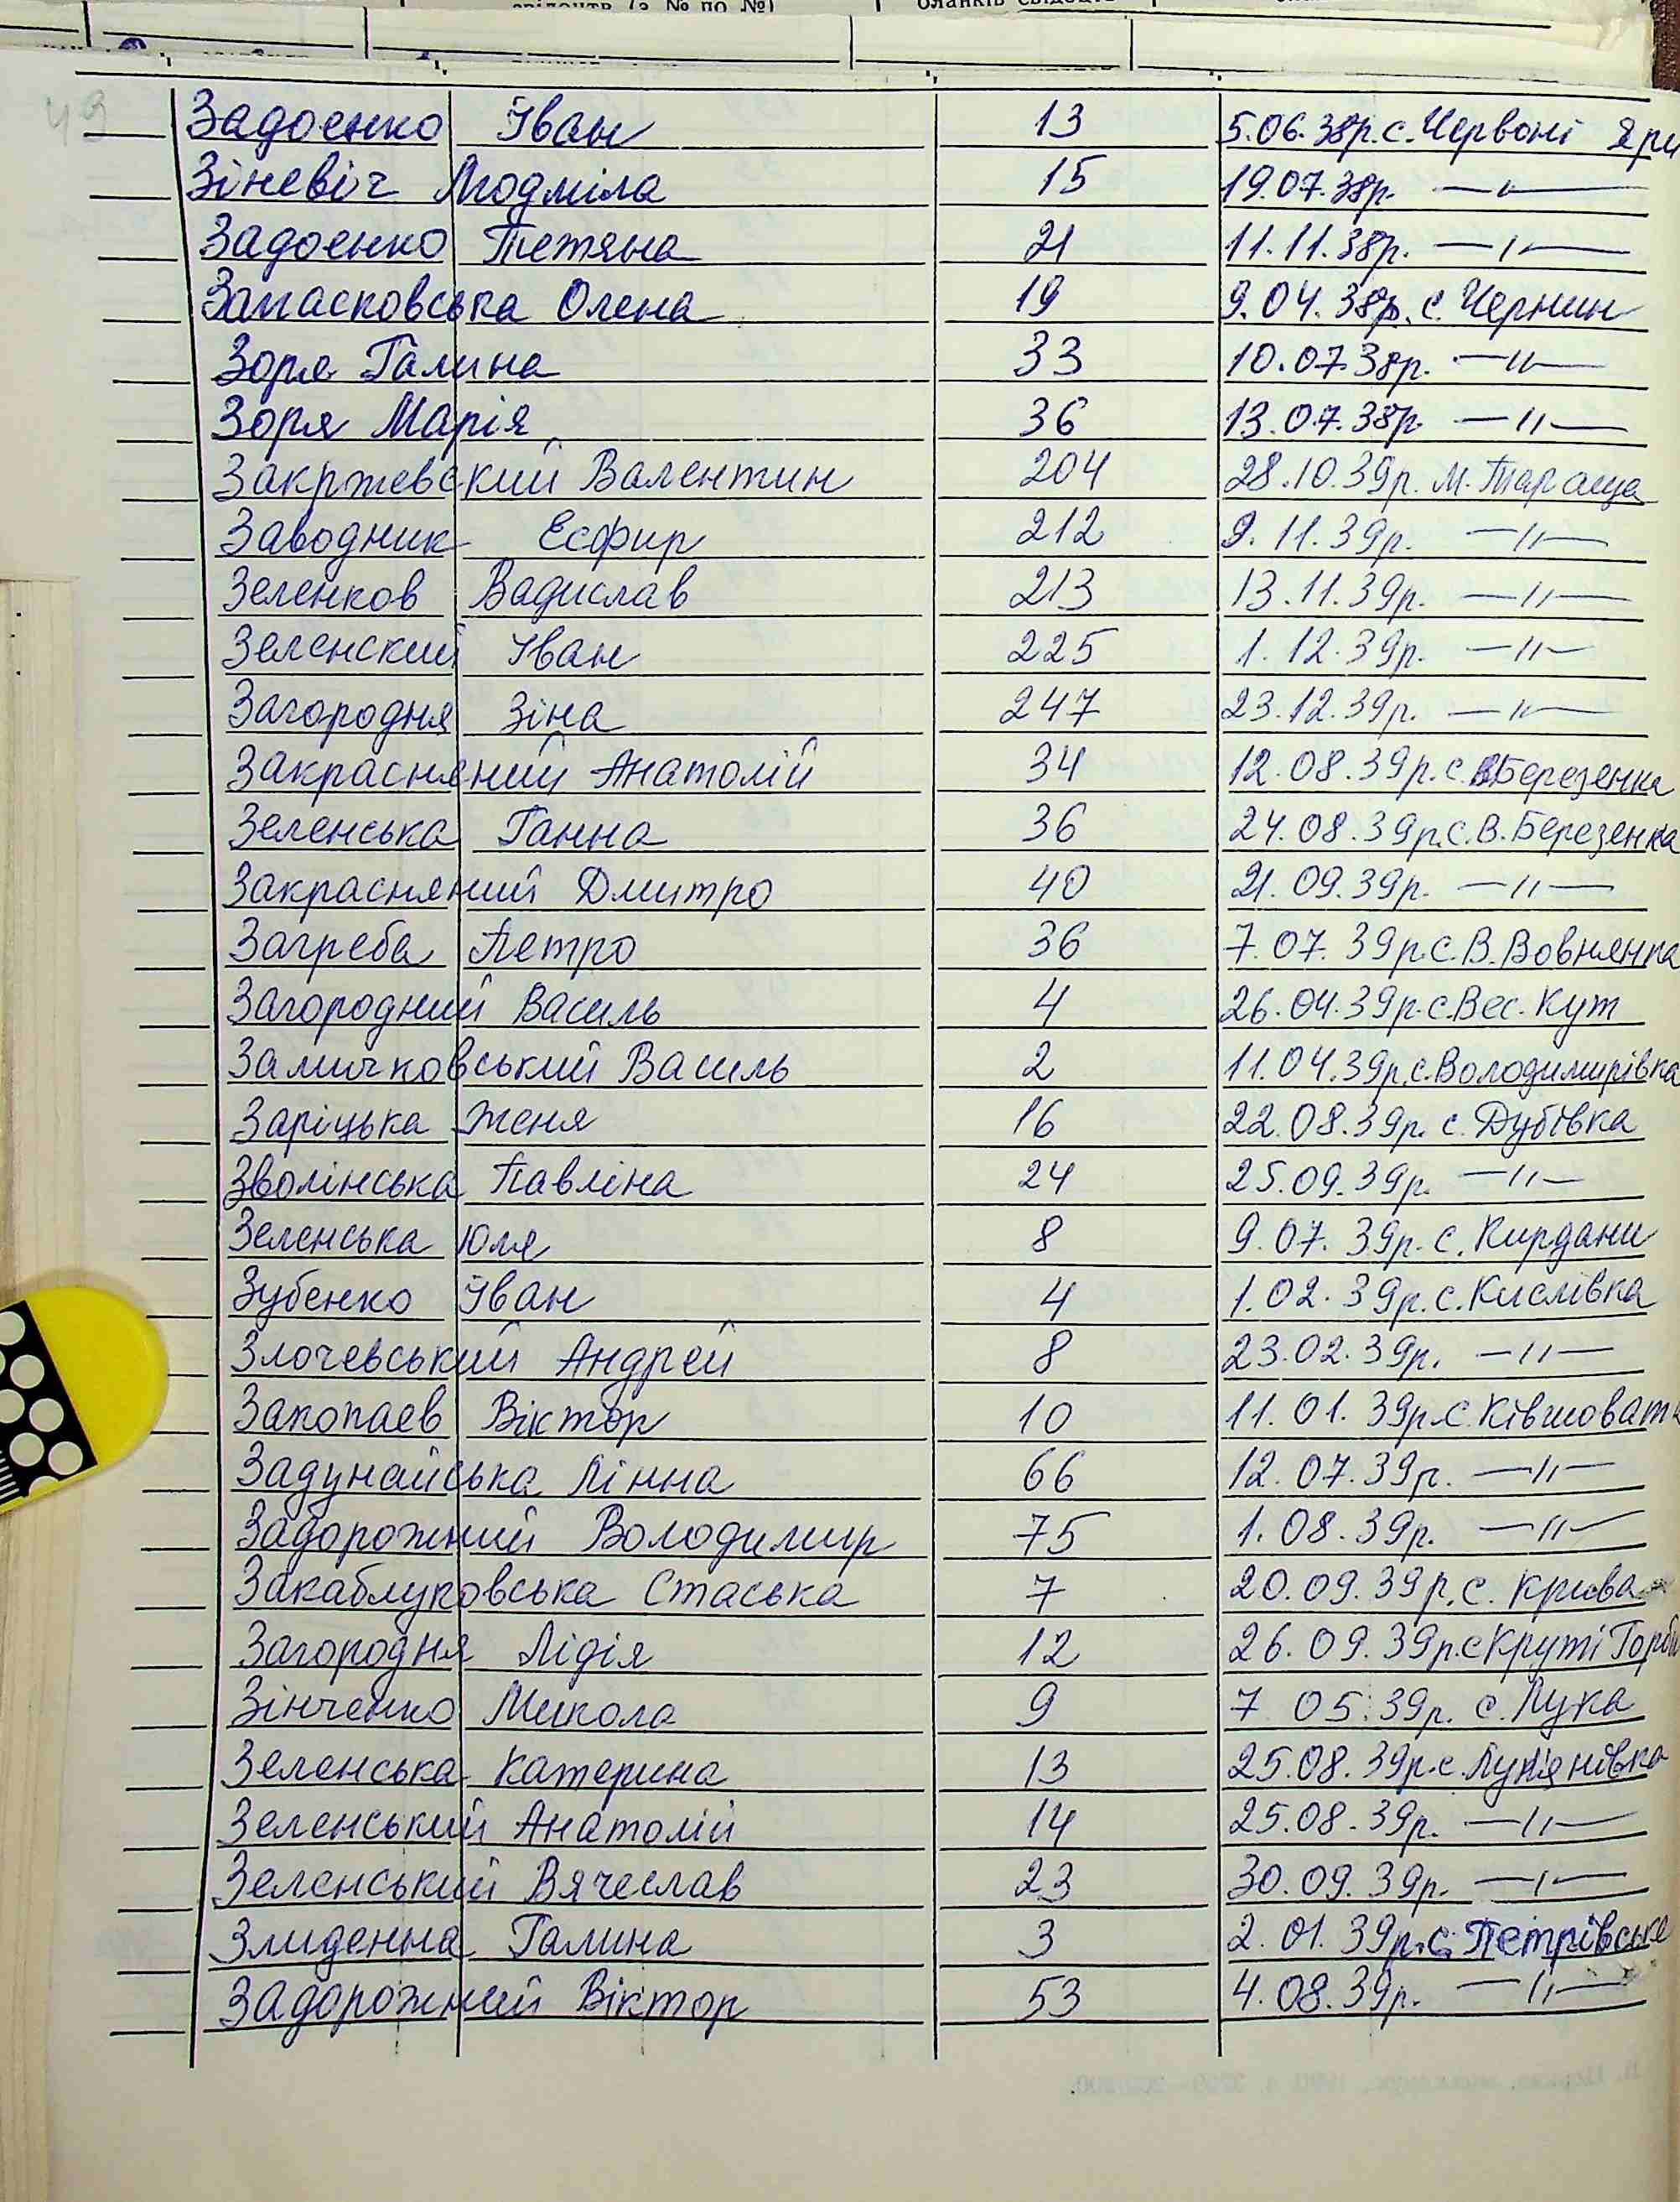 свідоцтв (з № по №) бланків свідоцтв
49
Задоєнко Іван 13 5.06.38р. с. Червоні Яри
Зіневіч Людміла 15 19.07.38р. —"—
Задоєнко Тетяна 21 11.11.38р. —"—
Замасковська Олена 19 9.04.38р. с. Чернин
Зоря Галина 33 10.07.38р. —"—
Зоря Марія 36 13.07.38р. —"—
Закржевский Валентин 204 28.10.39р. м. Тараща
Заводник Есфир 212 9.11.39р. —"—
Зеленков Вадислав 213 13.11.39р. —"—
Зеленский Іван 225 1.12.39р. —"—
Загородня Зіна 247 23.12.39р. —"—
Закрасняний Анатолій 34 12.08.39р. с. В Березенка
Зеленська Ганна 36 24.08.39р. с. В. Березенка
Закрасняний Дмитро 40 21.09.39р. —"—
Загреба Петро 36 7.07.39р. с. В. Вовнянка
Загородний Василь 4 26.04.39р. с. Вес. Кут
Заличковський Василь 2 11.04.39р. с. Володимирівка
Заріцька Женя 16 22.08.39р. с. Дубівка
Зволінська Павліна 24 25.09.39р. —"—
Зеленська Юля 8 9.07.39р. с. Кирдани
Зубенко Іван 4 1.02.39р. с. Кислівка
Злочевський Андрей 8 23.02.39р. —"—
Закопаєв Віктор 10 11.01.39р. с. Ківшовата
Задунайська Лінна 66 12.07.39р. —"—
Задорожний Володимир 75 1.08.39р. —"—
Закаблуковська Стаська 7 20.09.39р. с. Крива
Загородня Лідія 12 26.09.39р. с Круті Горби
Зінченко Микола 9 7 05.39р. с. Лука
Зеленська Катерина 13 25.08.39р. с. Лук'янівка
Зеленський Анатолій 14 25.08.39р. —"—
Зеленський Вячеслав 23 30.09.39р. —"—
Злиденна Галина 3 2.01.39р. с. Петрівське
Задорожний Віктор 53 4.08.39р. —"—